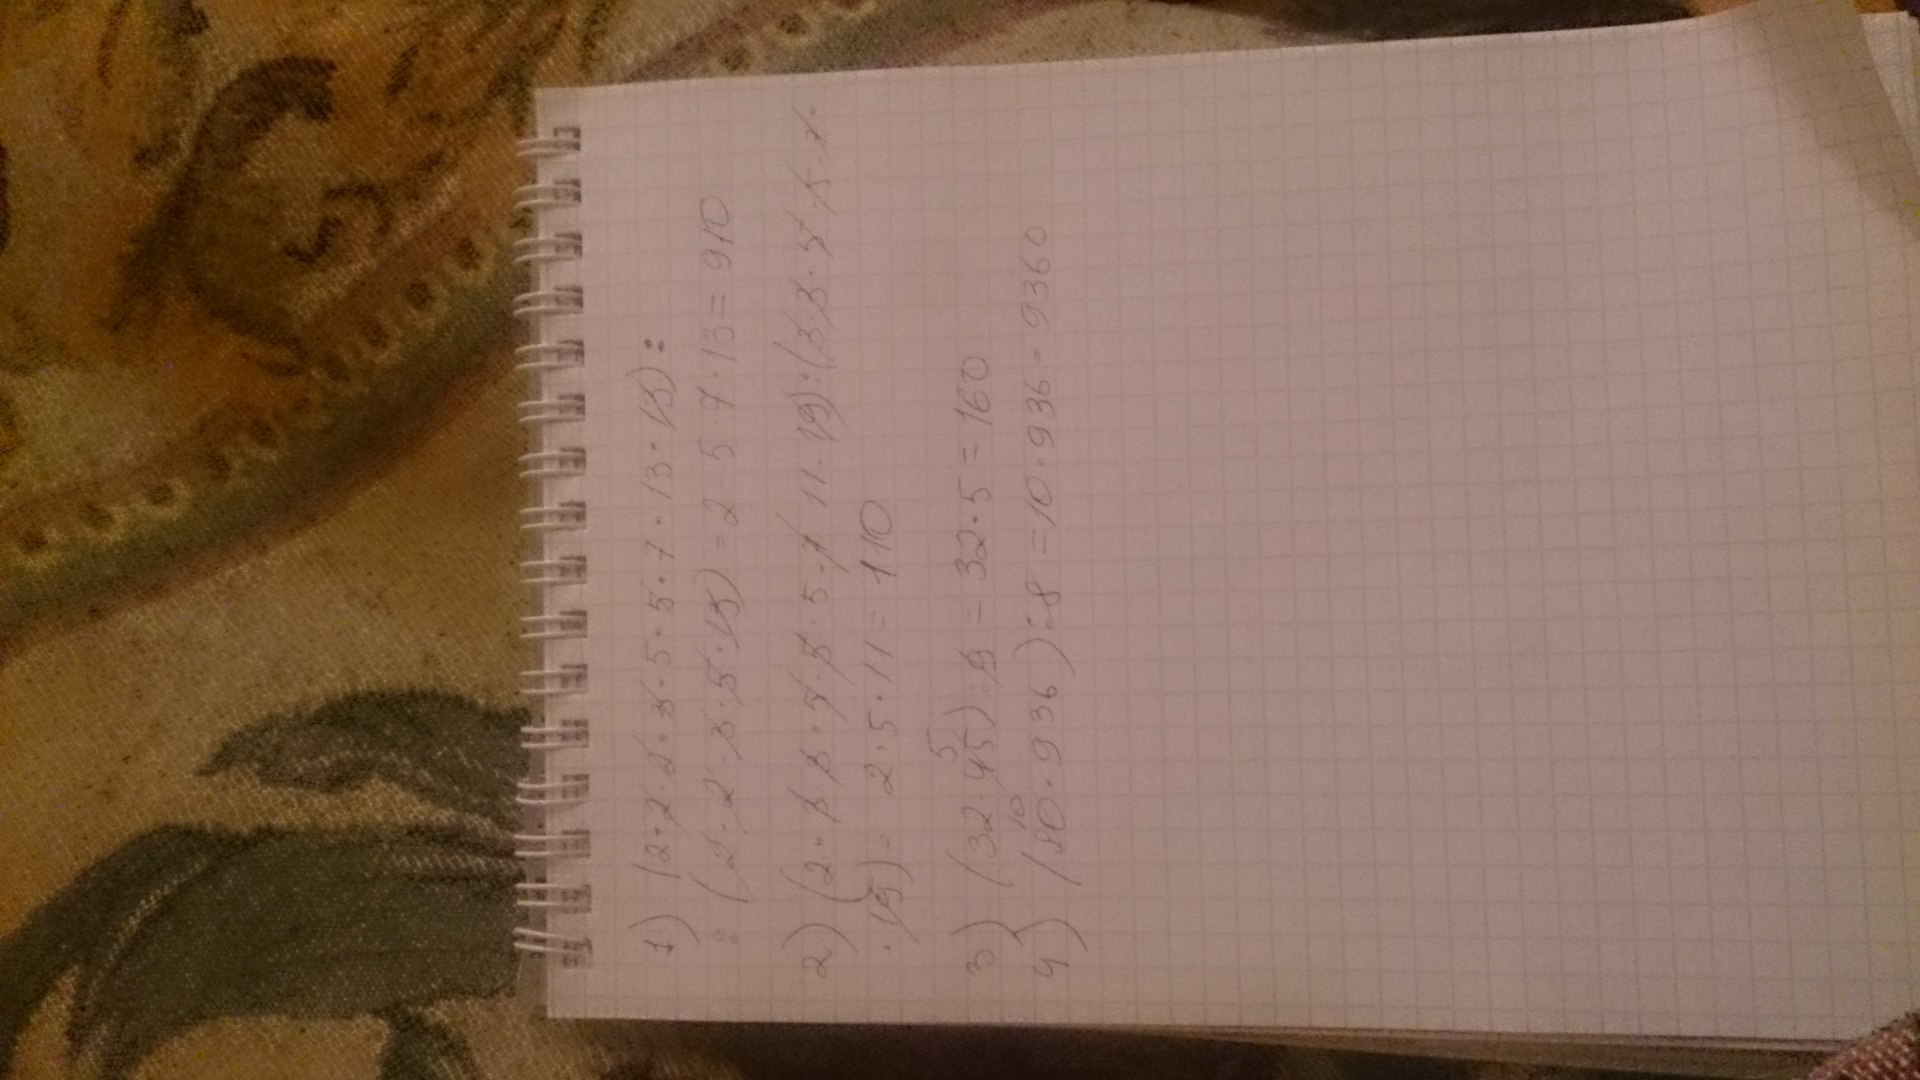 1) (2·2·2·3·5·5·7·13·13):
:(2·2·3·5·13) = 2·5·7·13 = 910
2) (2·3·3·5·5·5·7·11·19):(3·3·5·5·7·
·19) = 2·5·11 = 110
3) (32·45):9 = 32·5 = 160
4) (80·936):8 = 10·936 = 9360